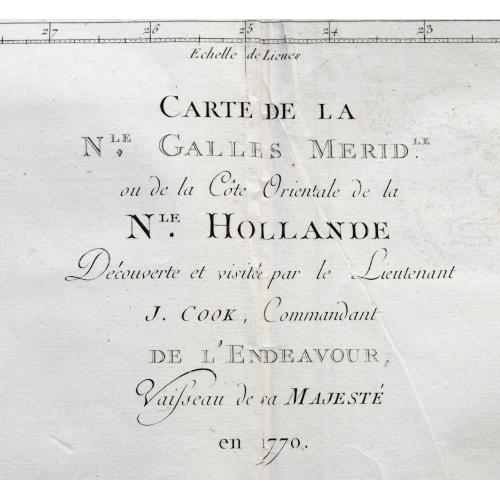 27 26 25 24 23
Echelle de Lieues
CARTE DE LA
N.LE GALLES MERID.LE
ou de la Côte Orientale de la
N.LE HOLLANDE
Découverte et visitée par le Lieutenant
J. COOK, Commandant
DE L'ENDEAVOUR,
Vaiſseau de sa MAJESTÉ
en 1770.